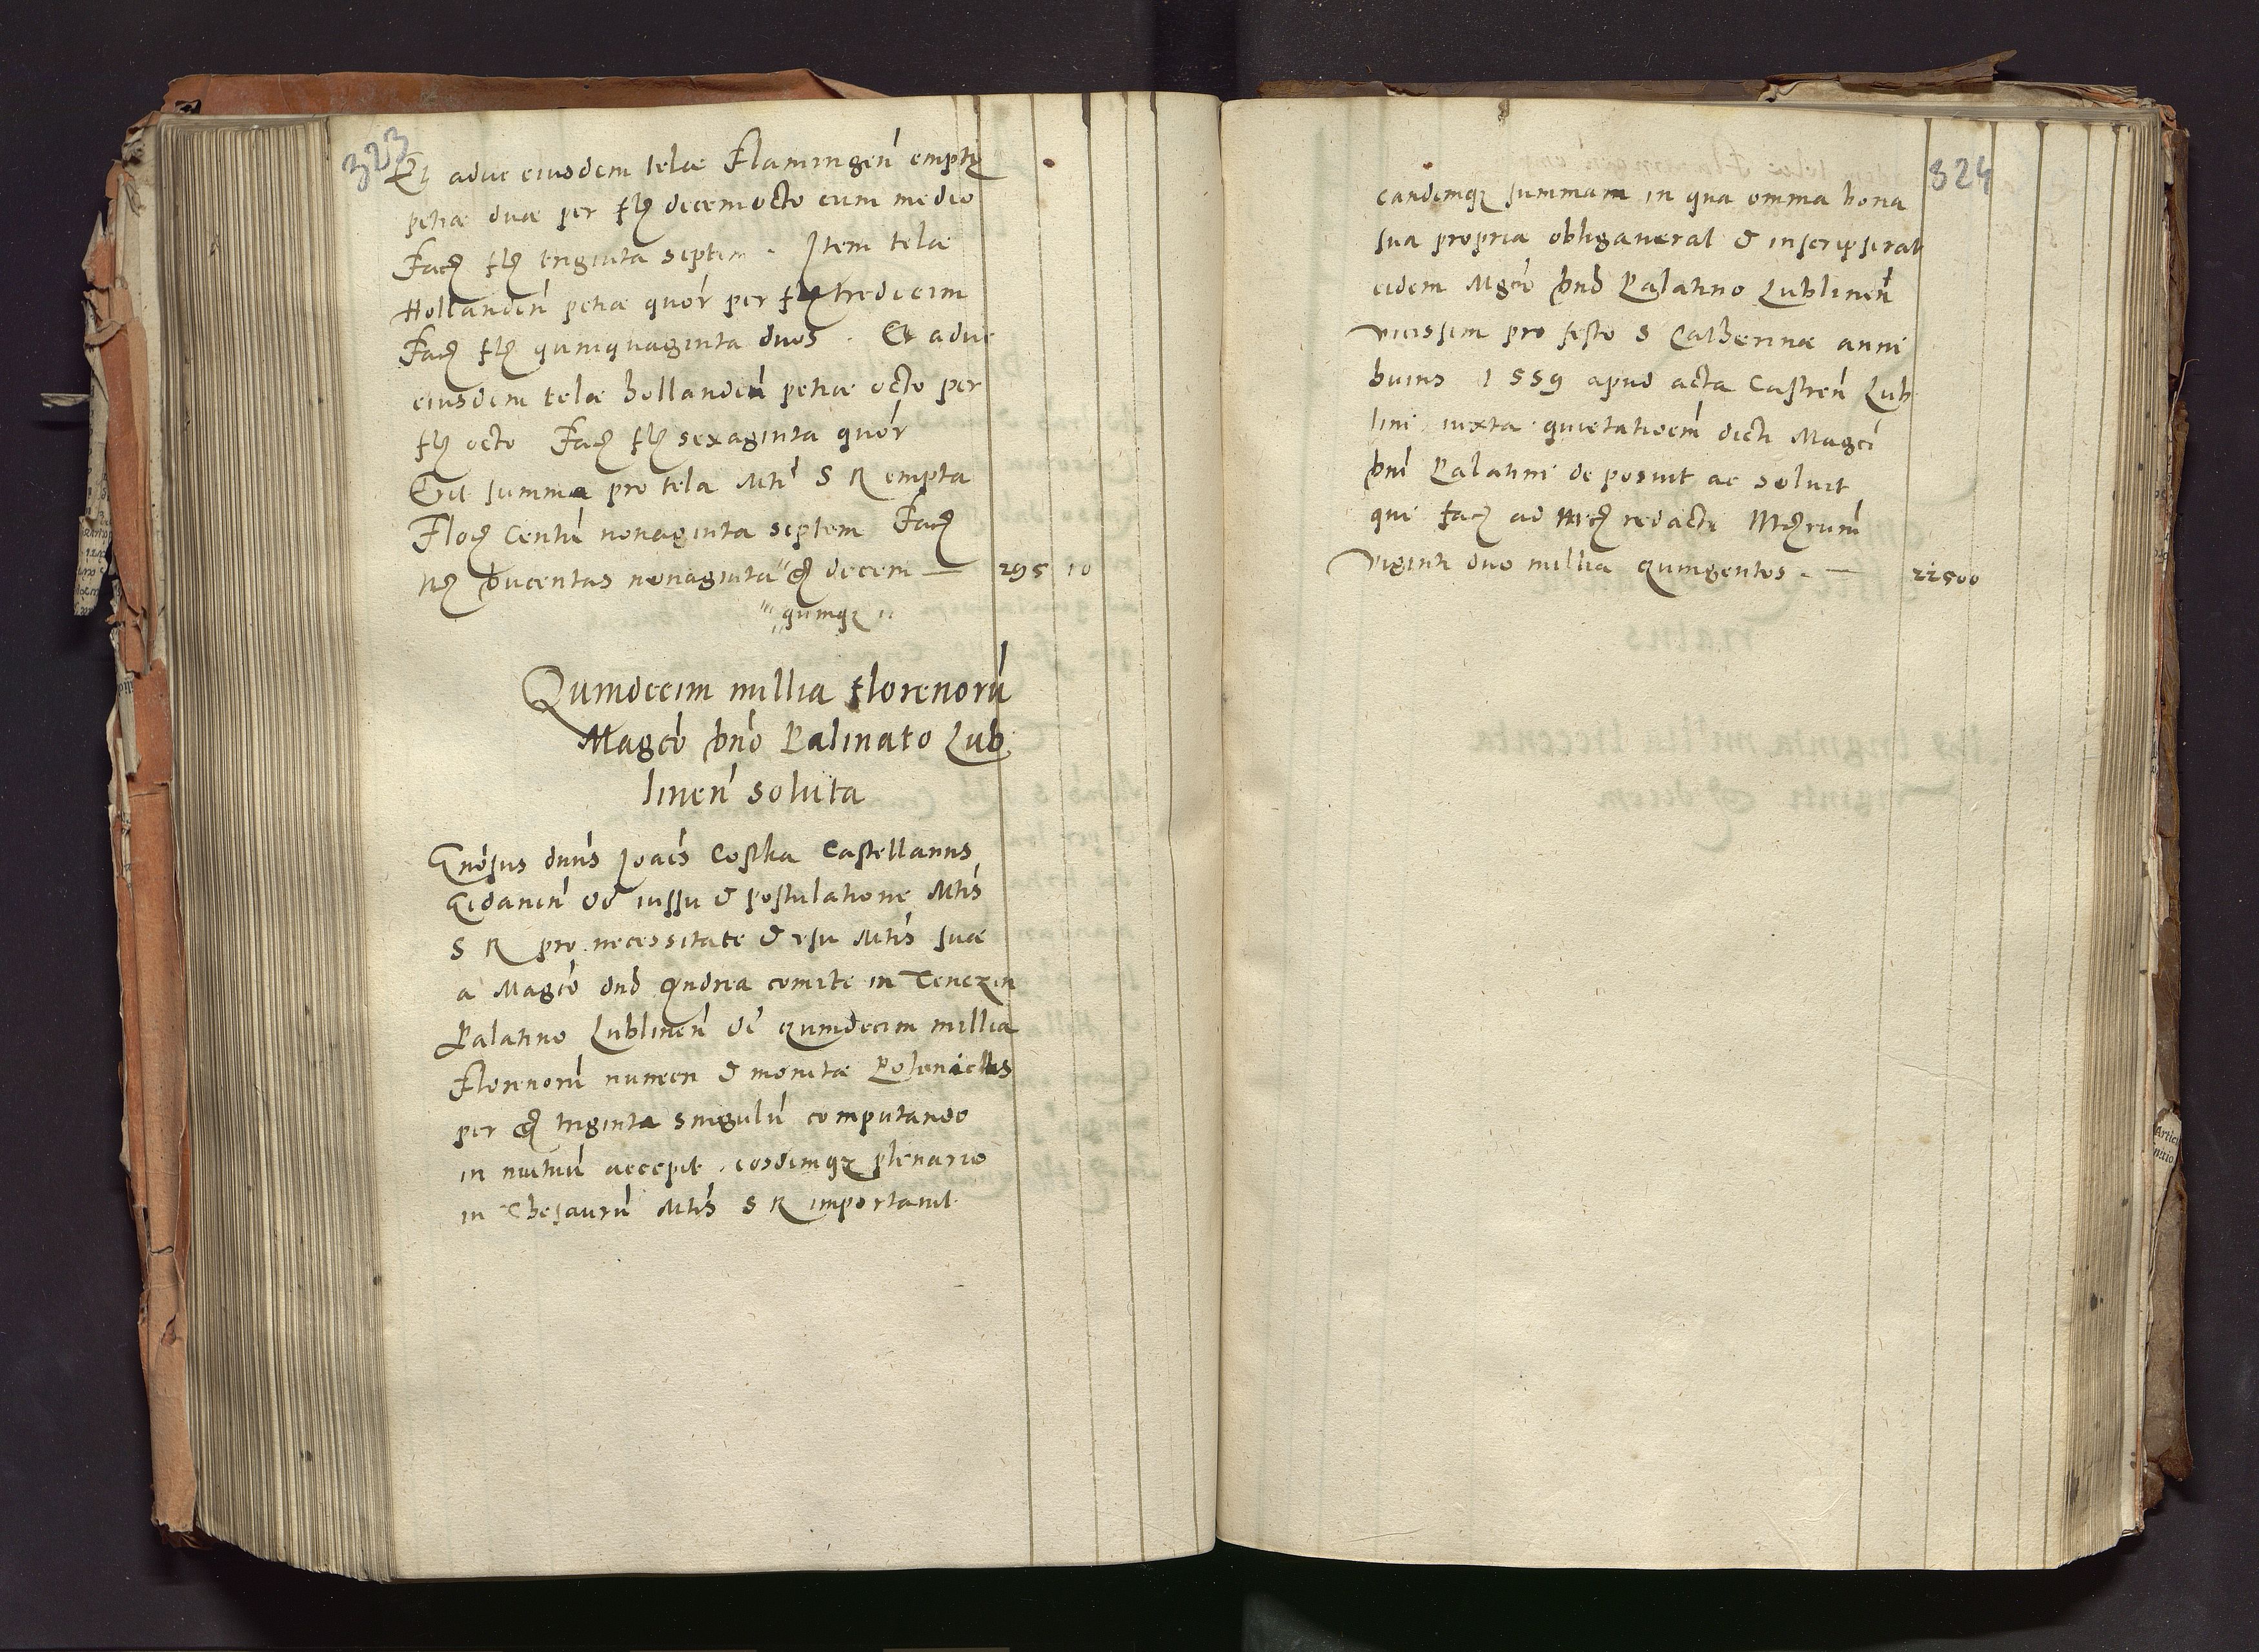 323
Et aduc eiusdem telae Flamingen̄ emptę
petiae duae per fl decemocto cum medio
Faċ fl triginta septem. Item telae
Hollanden̄ petiae quōr per fl tredecim
Faċ fl quinquaginta duos. Et aduc
eiusdem telae hollanden̄ petiae octo per
fl octo Faċ fl sexaginta quōr
Erit summa pro tela Mti S R empta
Floȓ Centū nonaginta septem Faċ
ducentas nonaginta gȓ decem — 295 10
quinqȝ
Quindecim millia florenorū
Magcō Dnō Palinato Lub
linen̄ soluta
Gnōsus dnūs Joaēs Costka Castellanus
Gedanen̄ de iussu & postulatione Mtīs
S R pro necessitate & usu Mtīs suae
a Magcō dnō Andrea comite in Tenczin
Palatino Lublinen̄ quindecim millia
Florenorū numeri & monetae Polonicalis
per gȓ triginta singulū computando
in mutuū accepit eosdemqȝ plenarie
in Thesaurū Mtīs S R importauit
324
eandemqȝ summam in qua omnia bona
sua propria obligauerat & inscripserat
eidem Mgcō Dnō Palatino Lublinen̄
vicissim pro festo S Catherinae anni
huius 1559 apud acta Castren̄ Lub
lini iuxta quietationem̄ dicti Magci
Dnī Palatini deposuit ac soluit
qui Faċ ad mrc̄ redacti Mȓcarum
viginti duo millia quingentos. — 22500